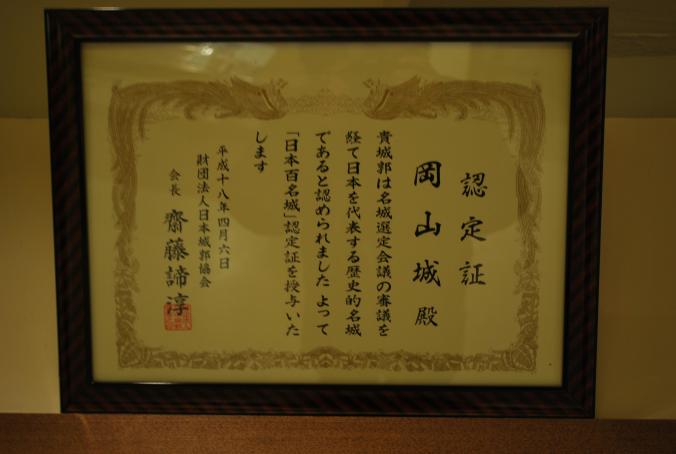 認定証
岡山城殿
貴城郭は名城選定会議の審議を
経て日本を代表する歴史的名城
であると認められました よって
「日本百名城」認定証を授与いた
します
平成十八年四月六日
財団法人日本城郭協会
会長 齋藤諦淳